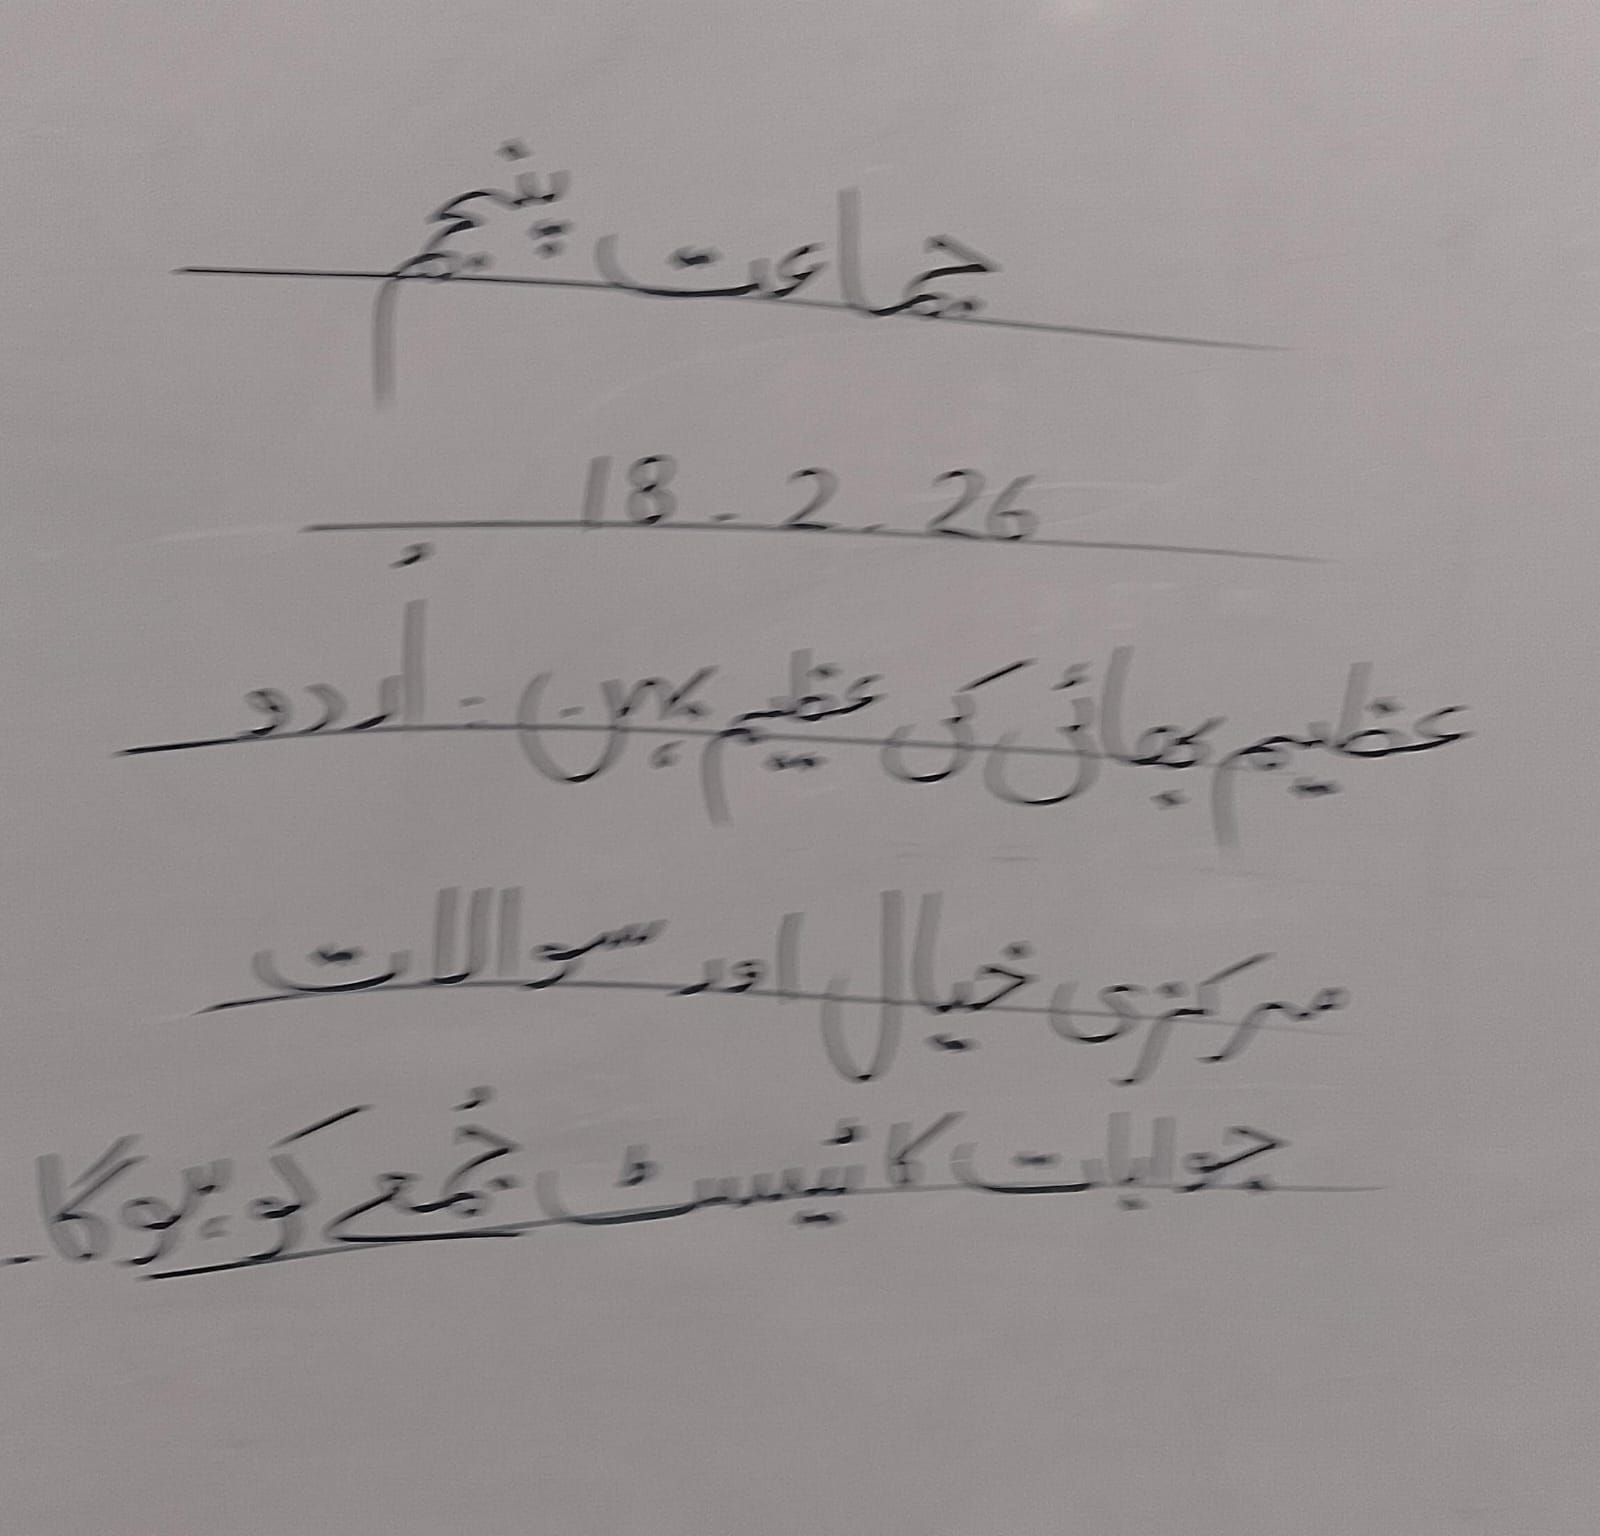 جماعت پنجم
18.2.26
عظیم بھائی کی عظیم بہن - اُردو
مرکزی خیال اور سوالات
جوابات کا ٹیسٹ جُمعے کو ہوگا۔